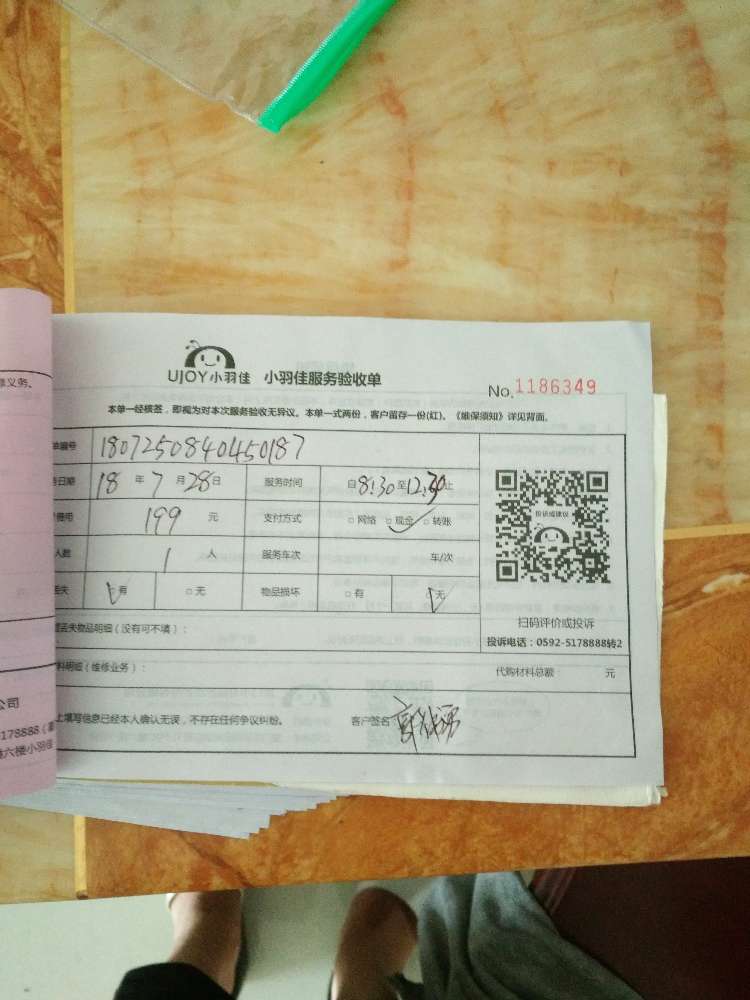 修义务。
UJOY小羽佳 小羽佳服务验收单
No.1186349
本单一经核签，即视为对本次服务验收无异议。本单一式两份，客户留存一份(红)。《维保须知》详见背面。
单编号 1807250840450187
务日期 18 年 7 月 28 日 服务时间 自 8:30 至 12:30 止
费用 199 元 支付方式 □网络 □现金 □转账
人数 1 人 服务车次 车/次
丢失 □有 □无 物品损坏 □有 □无
投诉或建议
扫码评价或投诉
投诉电话：0592-5178888转2
丢失物品明细（没有可不填）：
料明细（维修业务）： 代购材料总额 元
上填写信息已经本人确认无误，不存在任何争议纠纷。 客户签名
公司
178888（
六楼小羽佳